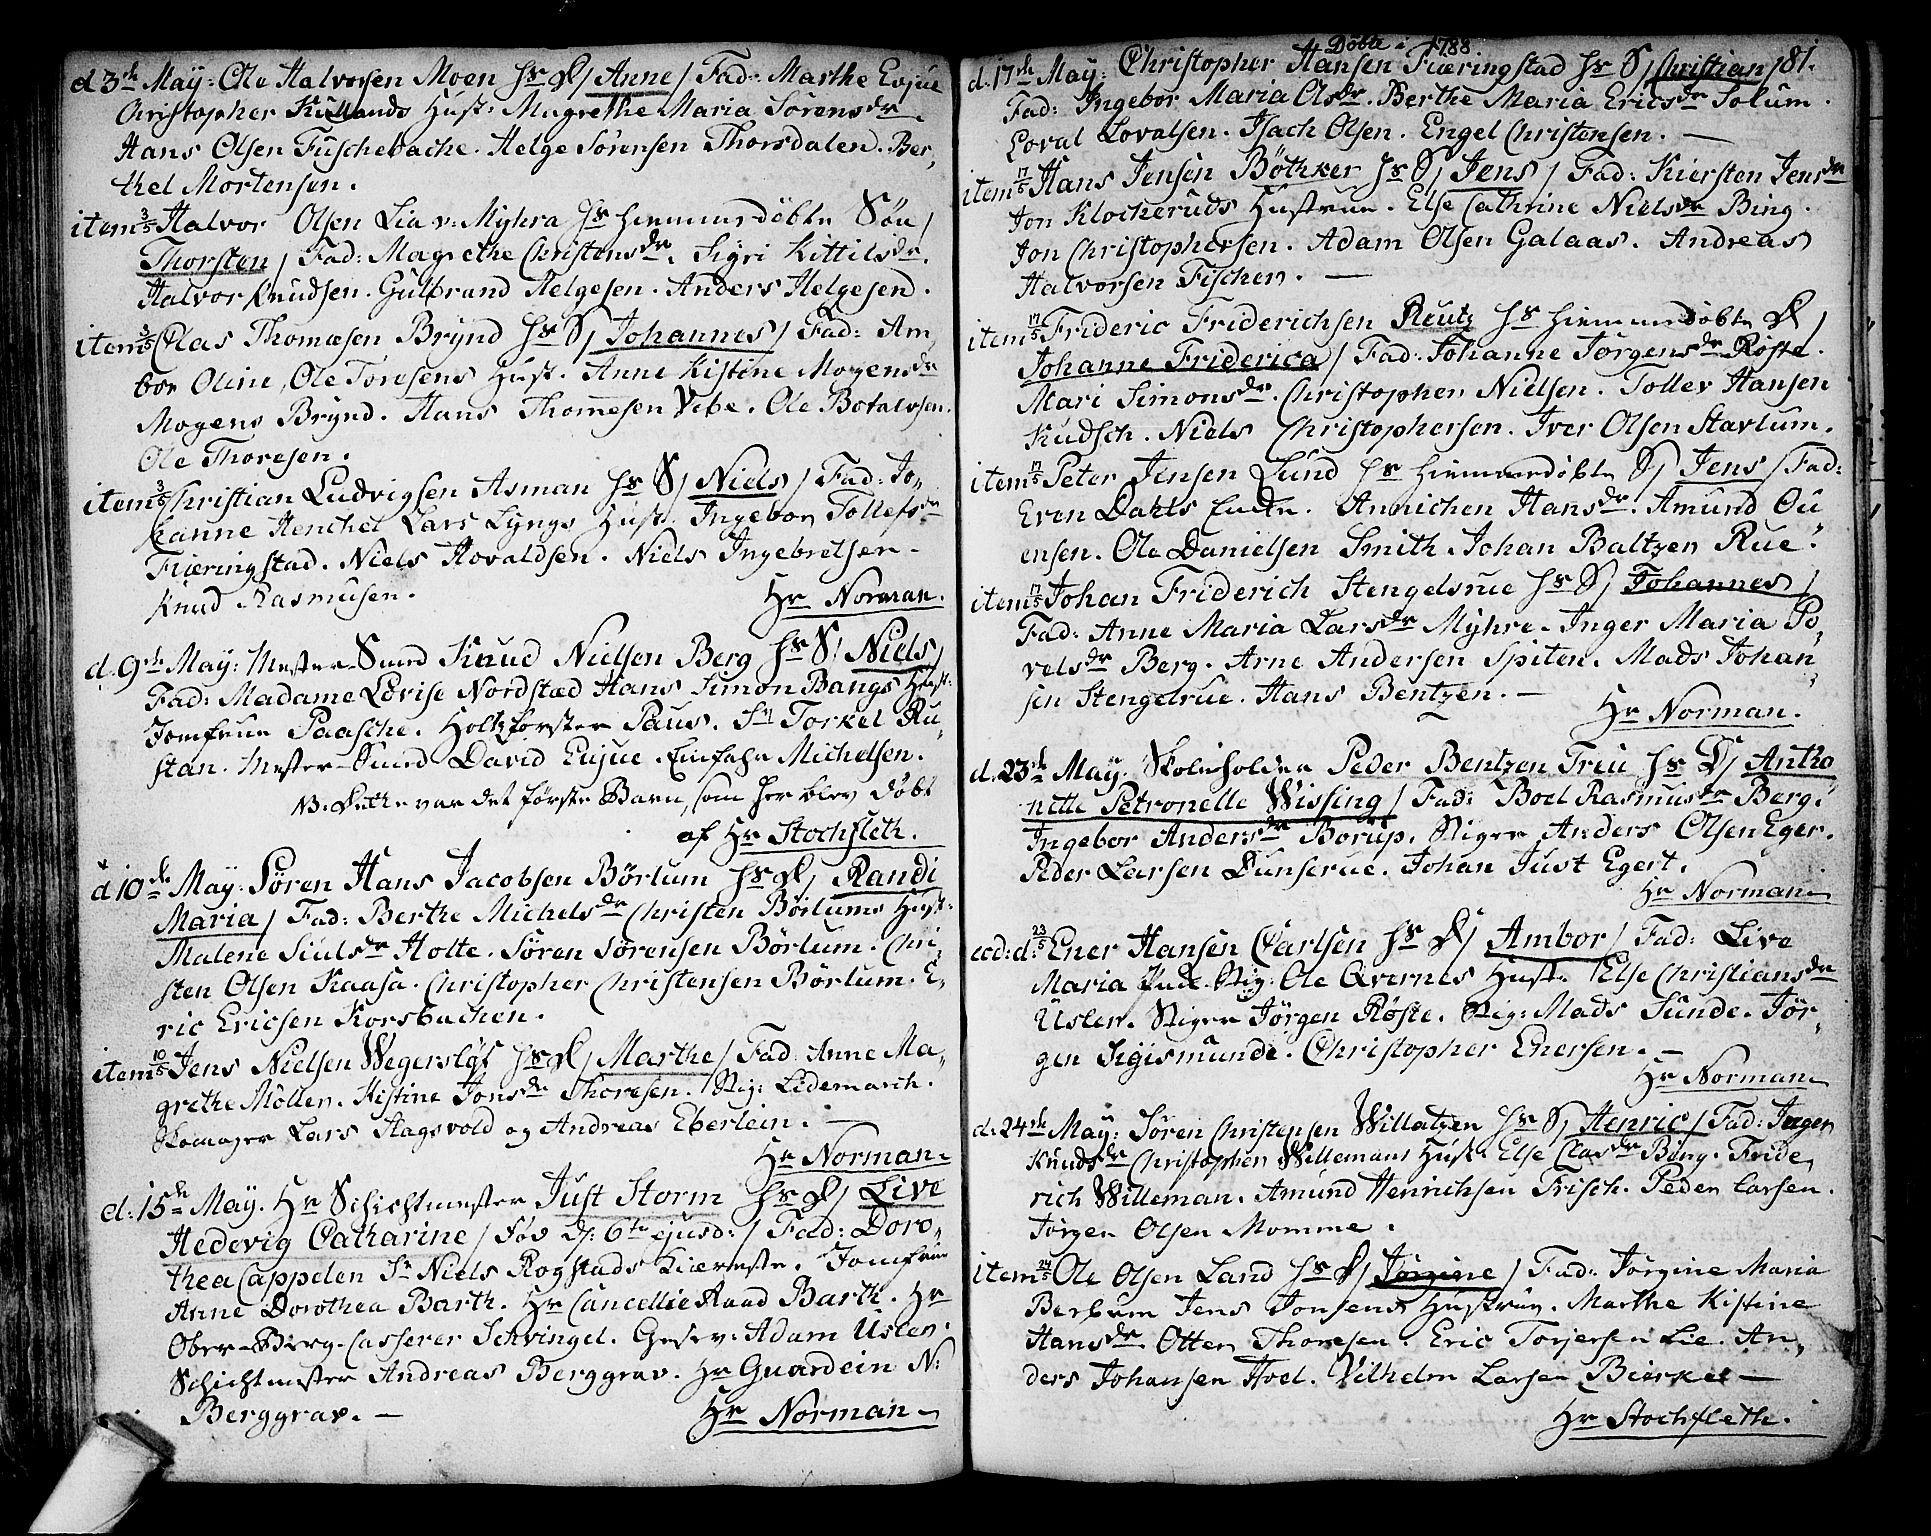 d. 3de May: Ole Halvorsen Moen Hs D/ Anne / Fad: Marthe Evjue
Christopher Kullands Hust: Magrethe Maria Sørensdr.
Hans Olsen Fuschebache. Helge Sørensen Thorsdalen. Ber,
thel Mortensen.
item 3/5 Halvor Olsen Lia v: Myhra Hs hiemmedøbte Søn /
Thorsten / Fad: Magrethe Christensdr. Sigri Kittilsdr.
Halvor Knudsen. Gulbrand Helgesen. Anders Helgesen.
item 3/5 Clas Thomesen Brynd Hs S/ Johannes / Fad: Am,
bor Oline, Ole Toresens Hust. Anne Kistine Mogensdr
Mogens Brynd. Hans Thomesen Vibe. Ole Botalvsen.
Ole Thoresen.
item 3/5 Christian Ludvigsen Asman Hs S/ Niels / Fad: Jo,
hanne Henchel Lars Lyngs Hust. Ingebor Tollefsdr
Fiæringstad. Niels Hovaldsen. Niels Ingebretsen.
Knud Rasmusen.
Hr Norman.
d. 9de May: Mester-Svend Knud Nielsen Berg Hs S/ Niels /
Fad: Madame Lovise Nordstæd Hans Simon Bangs Hust:
Jomfrue Paasche. Holtzförster Paus. Sr Torkel Ru,
stan. Mester-Svend David Evjue. Einfahr Michelsen.
NB. Dette var det første Barn, som her blev døbt
af Hr Stochfleth.
d 10de May: Søren Hans Jacobsen Börlum Hs D/ Randi
Maria / Fad: Berthe Michelsdr Christen Börlums Hust:
Malene Siulsdr Holte. Søren Sørensen Börlum. Chri,
sten Olsen Kaasa. Christopher Christensen Börlum. E,
ric Ericsen Korsbachen.
item 10/5 Jens Nielsen Wegersløf Hs D/ Marthe / Fad: Anne Ma,
grethe Möller. Kistine Jonsdr Thoresen. Stig: Lidemarch.
Skomager Lars Hagsvold og Andreas Eberlein. —
Hr Norman.
d: 15de May. Hr Schichtmester Just Storm Hs D/ Live
Hedevig Catharine / föd d: 6te ejusd: / Fad: Doro,
thea Cappelen Sr Niels Rogstads Kiæreste. Jomfrue
Anne Dorothea Barth. Hr Cancellie Raad Barth. Hr
Ober-Berg-Casserer Schvingel. Gesv: Adam Uslen.
Schichtmester Andreas Berggrav. Hr Guardein N:
Berggrav. —
Hr Norman.
Döbte i 1788
81.
d. 17de May: Christopher Hansen Fiæringstad Hs S/ Christian /
Fad: Ingebor Maria Olsdr. Berthe Maria Ericsdr Solum.
Loval Lovalsen. Isach Olsen. Engel Christensen. —
item 17/5 Hans Jensen Bötzker Hs S/ Jens / Fad: Kiersten Jensdr
Jon Klocheruds Hustrue. Else Cathrine Nielsdr Bing.
Jon Christophersen. Adam Olsen Galaas. Andreas
Halvorsen Fischer. —
item 17/5 Frideric Friderichsen Reutz Hs hiemmedøbte D /
Johanne Friderica / Fad: Johanne Jørgensdr Røste.
Mari Simonsdr. Christopher Nielsen. Tollev Hansen
Kudsch. Niels Christophersen. Iver Olsen Stavlum.
item 17/5 Peter Jensen Lund Hs hiemmedøbte S/ Jens / Fad:
Even Dahls Encke. Annichen Hansdr. Amund Ou
ensen. Ole Danielsen Smith. Johan Baltzen Rue.
item 17/5 Johan Friderich Stengelsrue Hs S/ Johannes /
Fad: Anne Maria Larsdr Myhre. Inger Maria Po,
velsdr Berg. Arne Andersen Spiten. Mads Johan,
sen Stengelrue. Hans Bentzen. —
Hr Norman.
d. 23de May. Skoleholder Peder Bentzen Friu Hs D/ Antho
nette Petronelle Wissing / Fad: Boel Rasmusdr Berg.
Ingebor Andersdr Borup. Stiger Anders Olsen Eger.
Peder Larsen Dunserue. Johan Just Egert.
Hr Norman.
eod: d: 23/5 Ener Hansen Carlsen Hs D/ Ambor / Fad: Live
Maria Stig: Ole Qvernes Hust. Else Christiansdr
Uslen. Stiger Jørgen Røste. Stig: Mads Sunde. Jör,
gen Sigismunde. Christopher Enersen. —
Hr Norman.
d: 24de May: Søren Christensen Willatzen Hs S/ Henric / Fad: Inger
Knudsdr Christopher Willemans Hust. Else Clasdr Bing. Fride,
rich Willeman. Amund Henrichsen Frisch. Peder Larsen.
Jørgen Olsen Momme.
item 24/5 Ole Olsen Land Hs D/ Jørgine / Fad: Jørgine Maria
Berbum Jens Jonsens Hustrue. Marthe Kistine
Hansdr. Otter Thoresen. Eric Torjersen Lie. An,
ders Johansen Hoel. Vilhelm Larsen Bierkee —
Hr Stochfleth.